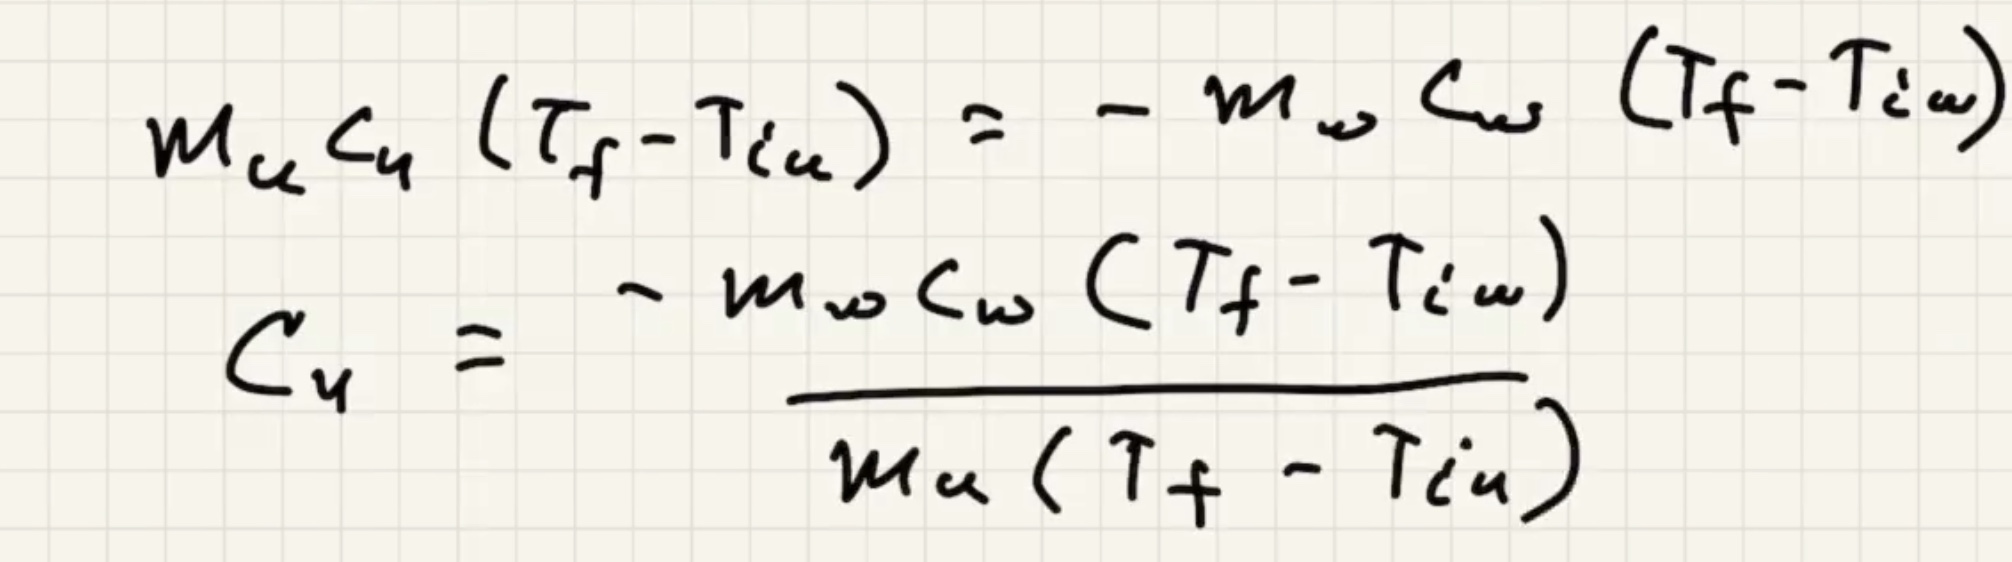 m_u c_u (T_f - T_iu) = - m_w c_w (T_f - T_iw)
c_u = - m_w c_w (T_f - T_iw) / m_u (T_f - T_iu)